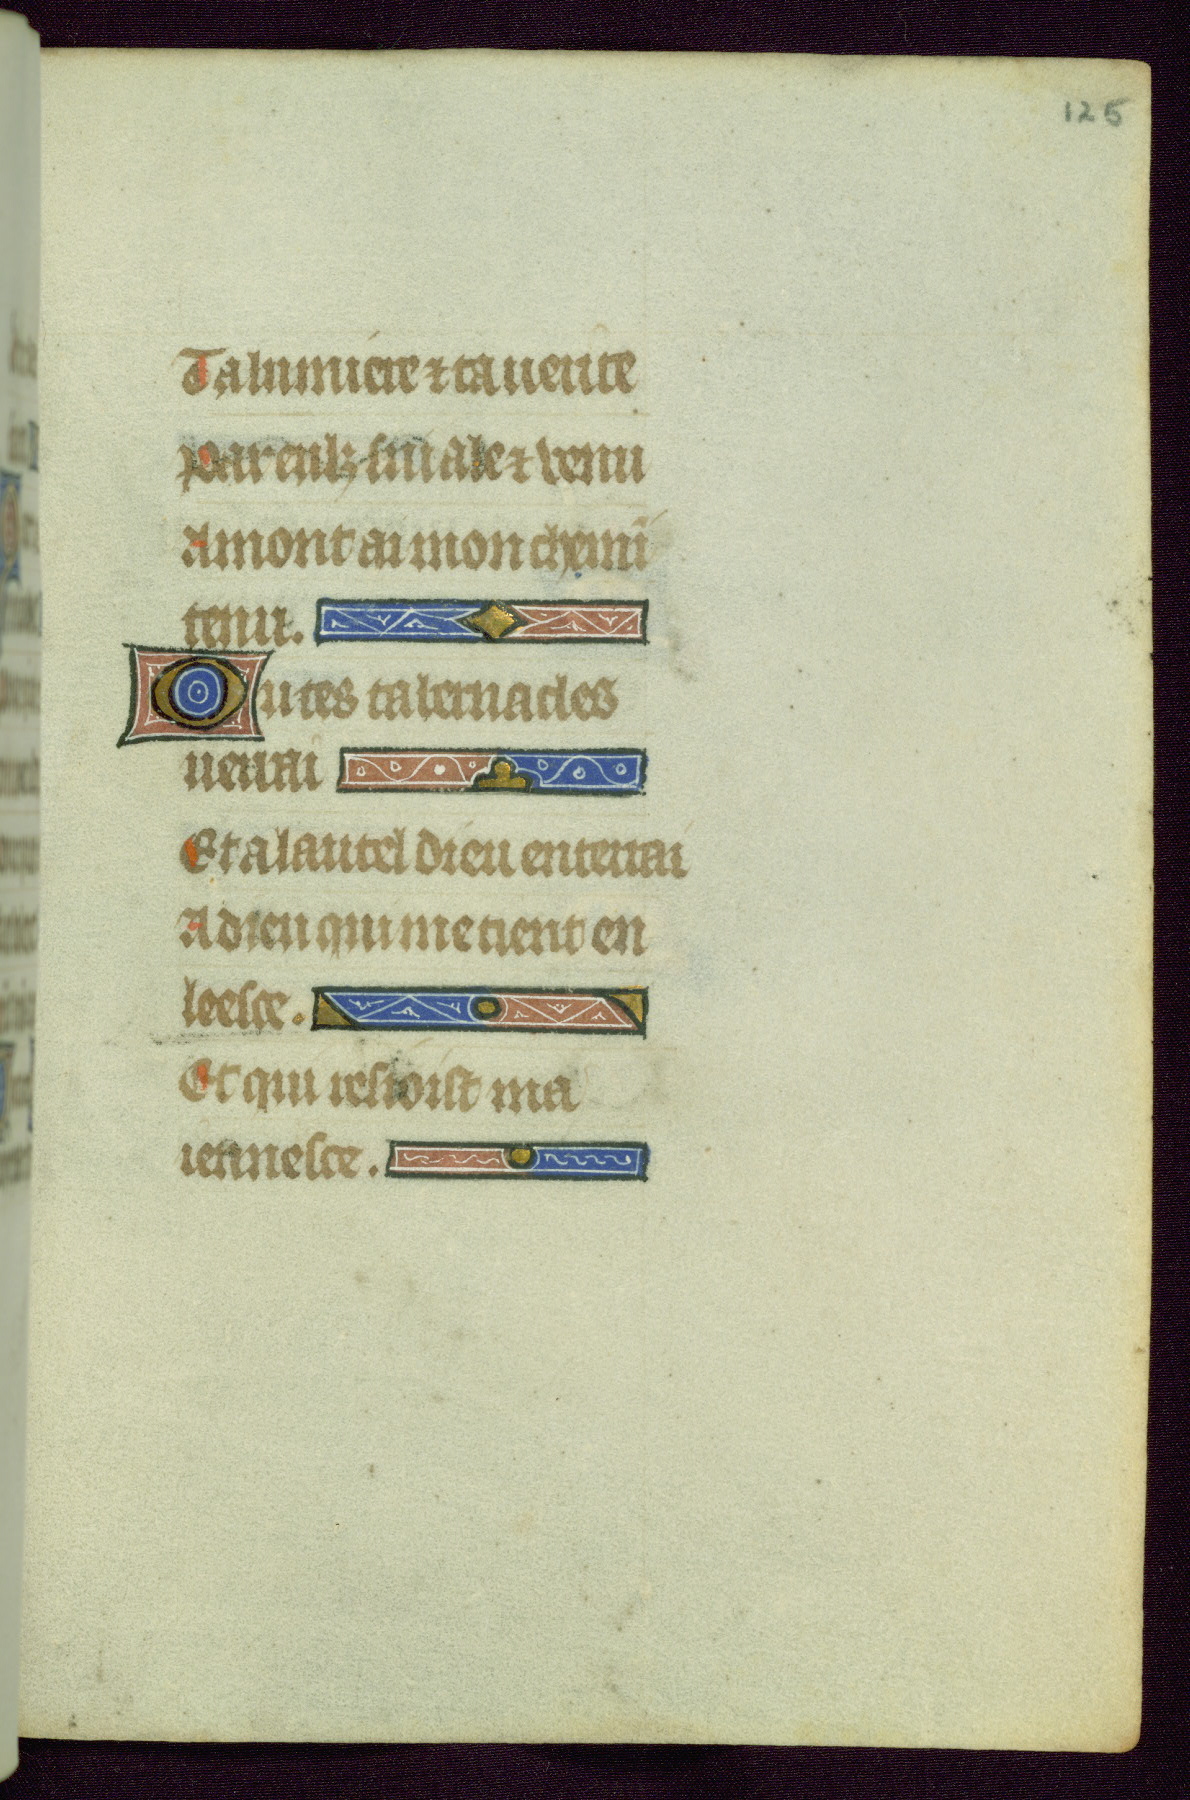 125
Ta lumiere ⁊ ta uerite
Par eulz sui ale ⁊ venu
A mont ai mon chemī
tenu.
O u tes tabernacles
uerrai
Et a lautel dieu enterrai
A dieu qui me tient en
leesce.
Et qui resioist ma
iennesce.